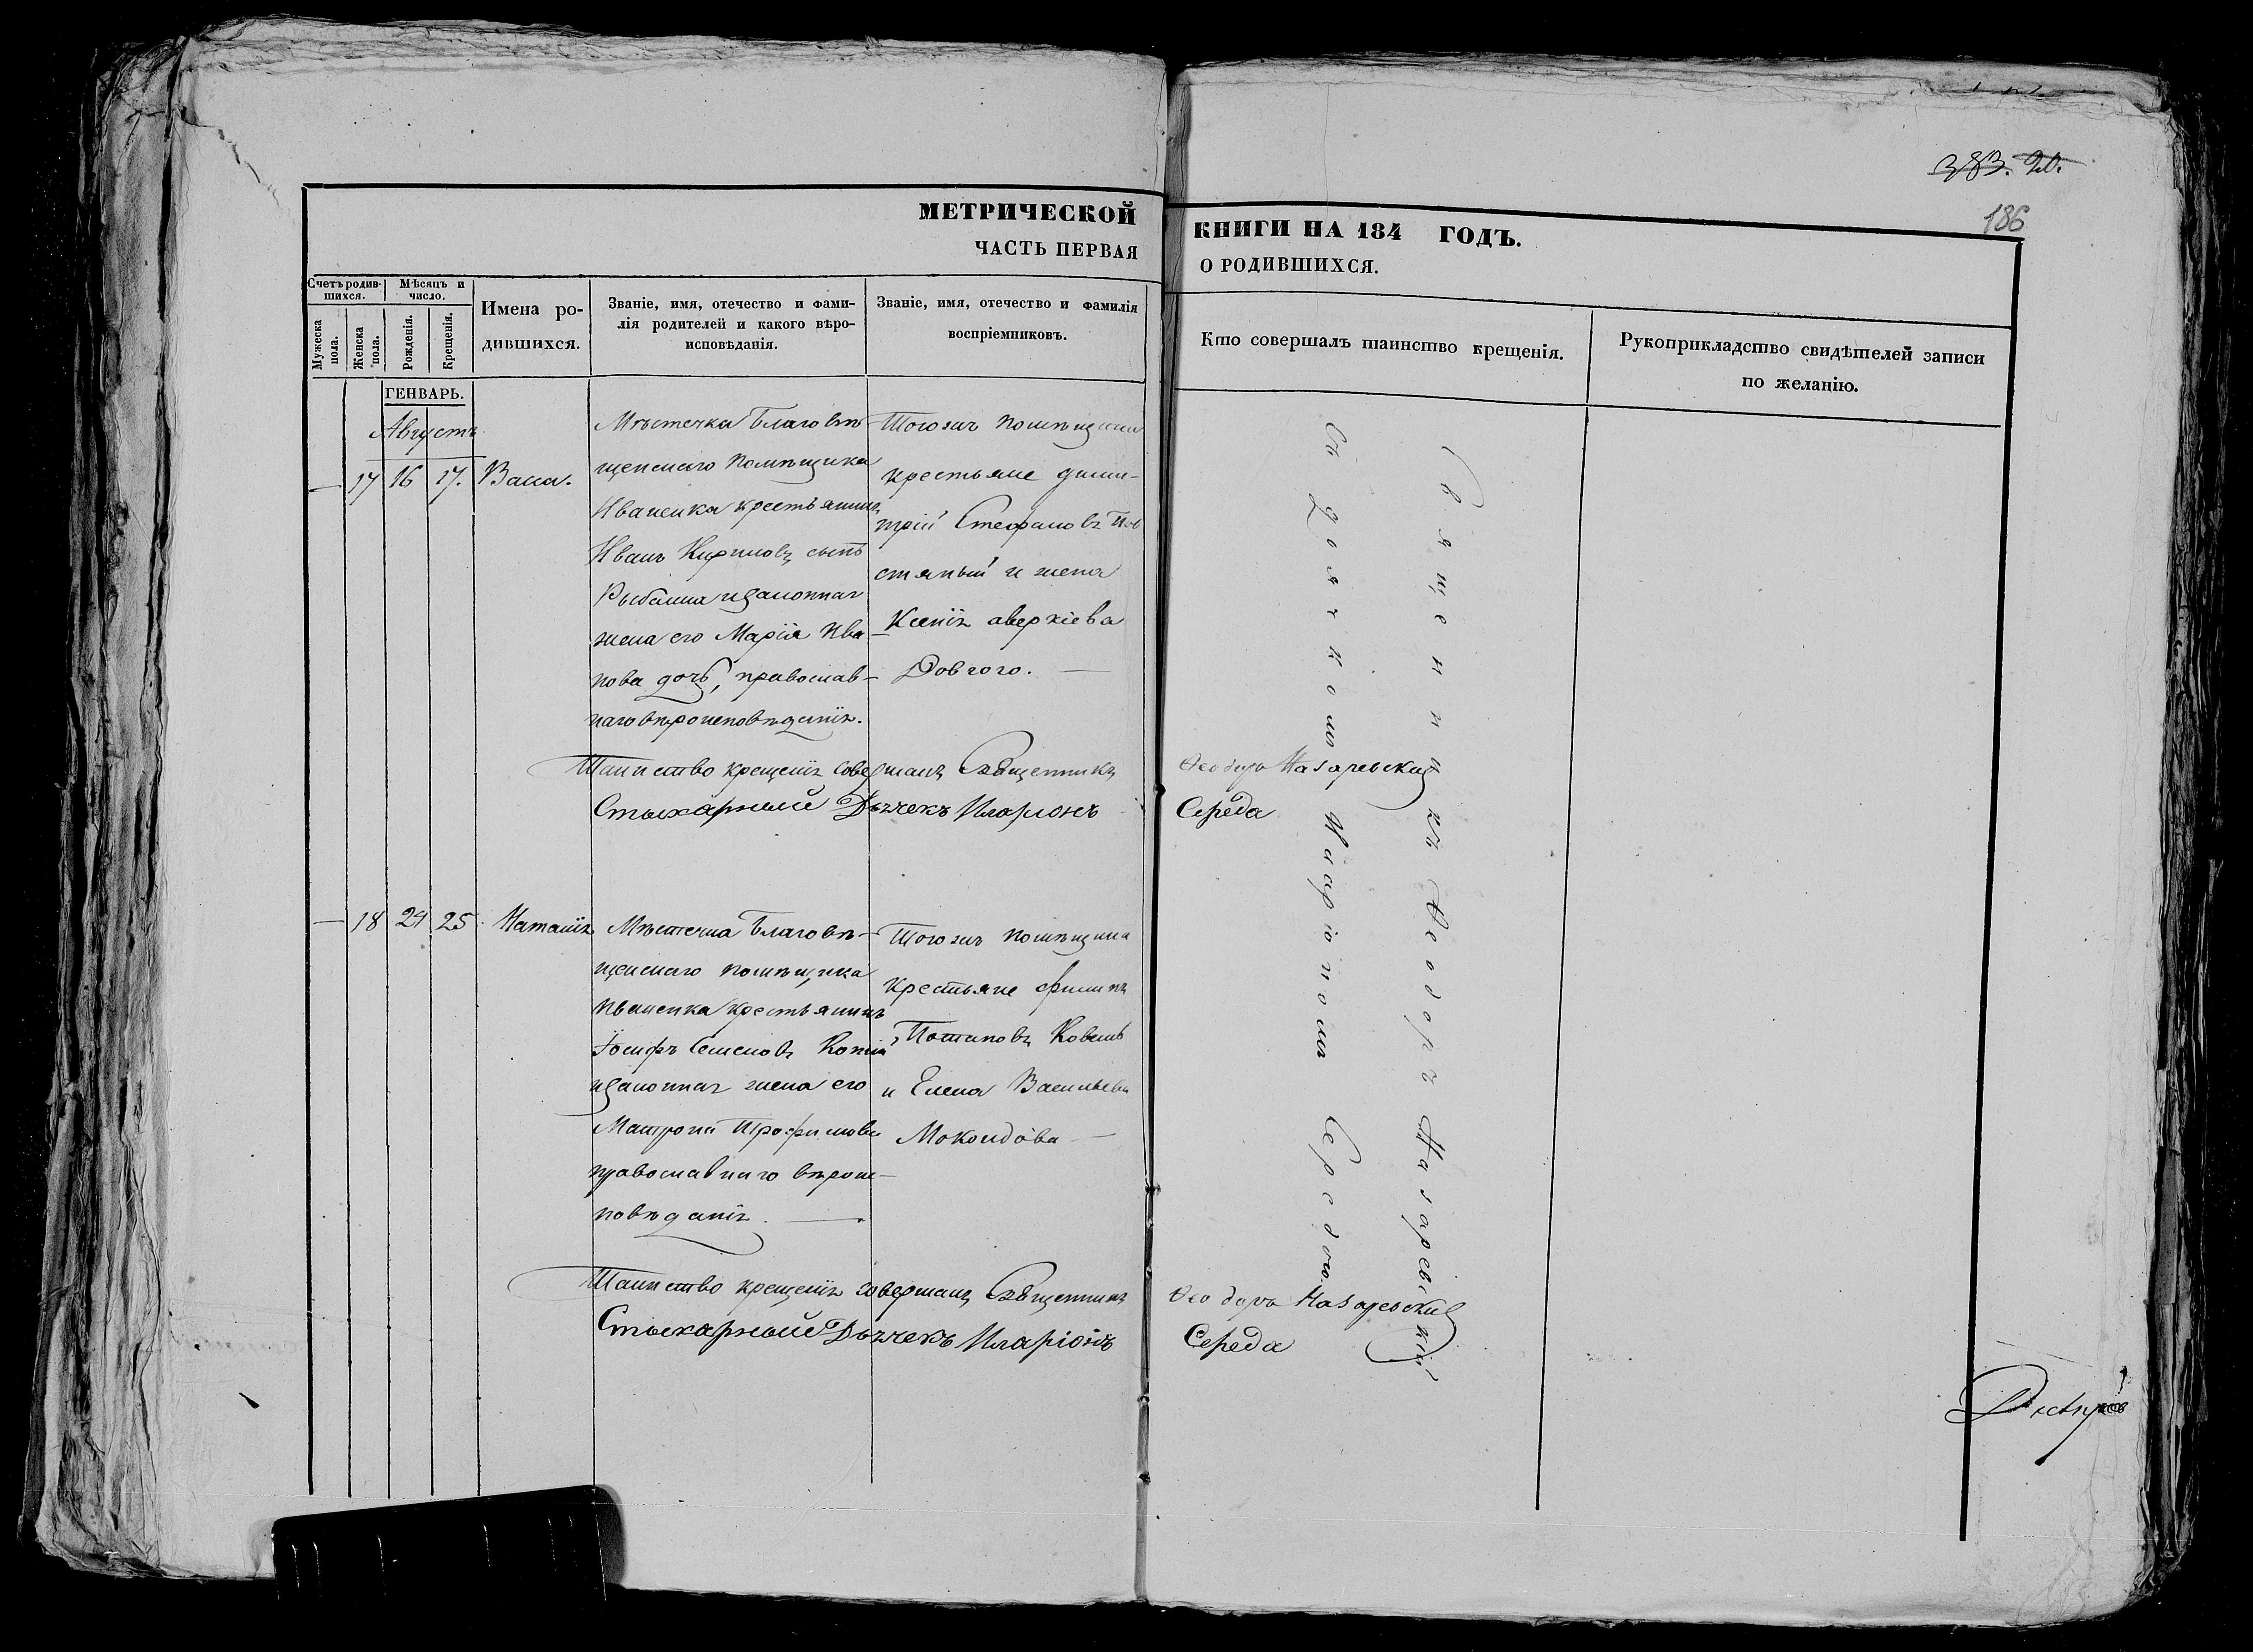 186
МЕТРИЧЕСКОЙ КНИГИ НА 184 ГОДЪ.
ЧАСТЬ ПЕРВАЯ О РОДИВШИХСЯ.
Счетъ родив-
шихся.
Мѣсяцъ и
число.
Мужеска
пола.
Женска
пола.
Рожденія.
Крещенія.
Имена ро-
дившихся.
Званіе, имя, отечество и фами-
лія родителей и какого вѣро-
исповѣданія.
Званіе, имя, отечество и фамилія
воспріемниковъ.
Кто совершалъ таинство крещенія.
Рукоприкладство свидѣтелей записи
по желанію.
ГЕНВАРЬ.
Августъ
— 17 16 17. Васса.
Мѣстечка Благовѣ
щенскаго помѣщика
Иваненка крестьянинъ
Иванъ Кириловъ сынъ
Рыбалка и законная
жена его Марія Ива
нова дочь, православ-
наго вѣроисповѣданія.
Тогожъ помѣщика
крестьяне дими-
трій Стефановъ
и жена
Ксенія аверкіева
Довгого. —
Таинство крещенія совершалъ Священникъ Феодоръ Назаревскій
Стыхарный Дьячекъ Иларионъ Середа
— 18 24 25 Наталія
Мѣстечка Благовѣ-
щенскаго помѣщика
Иваненка крестьянинъ
Іосифъ Семеновъ
и законная жена его
Матрона Трофимова
православнаго вѣроис-
повѣданія. —
Тогожъ помѣщика
крестьяне Филипъ
Потаповъ Ковель
и Елена Васильева
Таинство крещенія совершалъ Священникъ Феодоръ Назаревскій
Стыхарный Дьячекъ Иларіонъ Середа
Священникъ Феодоръ Назаревскій
Съ дьячкомъ Иларіономъ Середою.